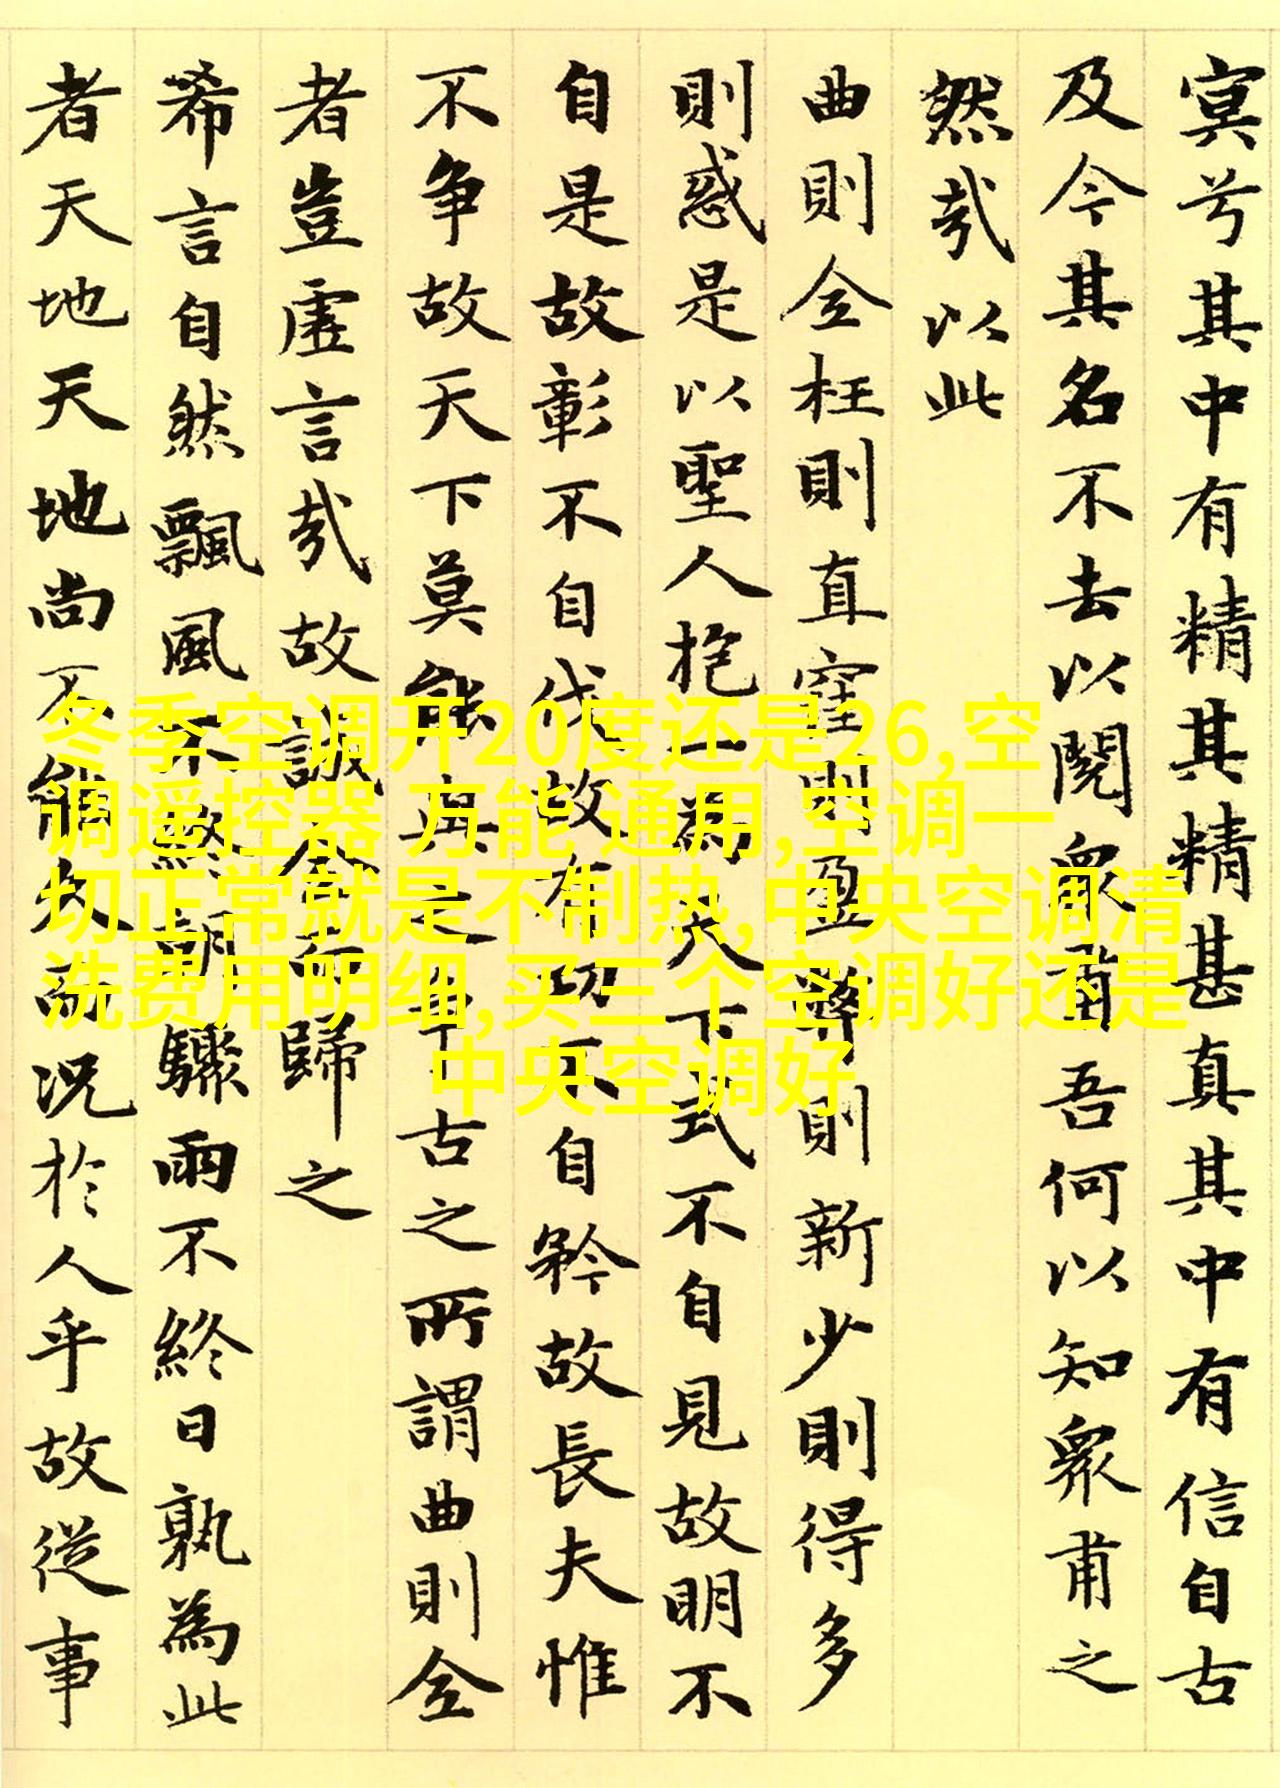 冥兮其中有精其精甚真其中有信自古
及今其名不去以閱衆甫吾何以知衆甫之
然哉以此
曲則全枉則直窪則盈弊則新少則得多
則惑是以聖人抱一為天下式不自見故明不
自是故彰不自伐故有功不自矜故長夫惟
不争故天下莫能與之爭古之所謂曲則全
者豈虛言哉故誠全而歸之
希言自然飄風不終朝驟雨不終日孰為此
者天地天地尚不能久而况於人乎故從事
冬季空调开20度还是26,空
调遥控器 万能 通用,空调一
切正常就是不制热,中央空调清
洗费用明细,买三个空调好还是
中央空调好